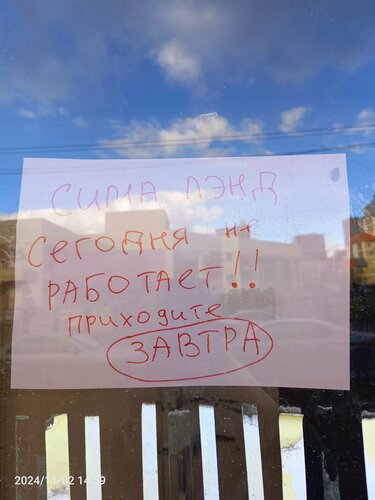 СИМА ЛЭНД
СЕГОДНЯ не
РАБОТАЕТ!!
ПРИХОДИТЕ
ЗАВТРА
2024/11/02 14:39